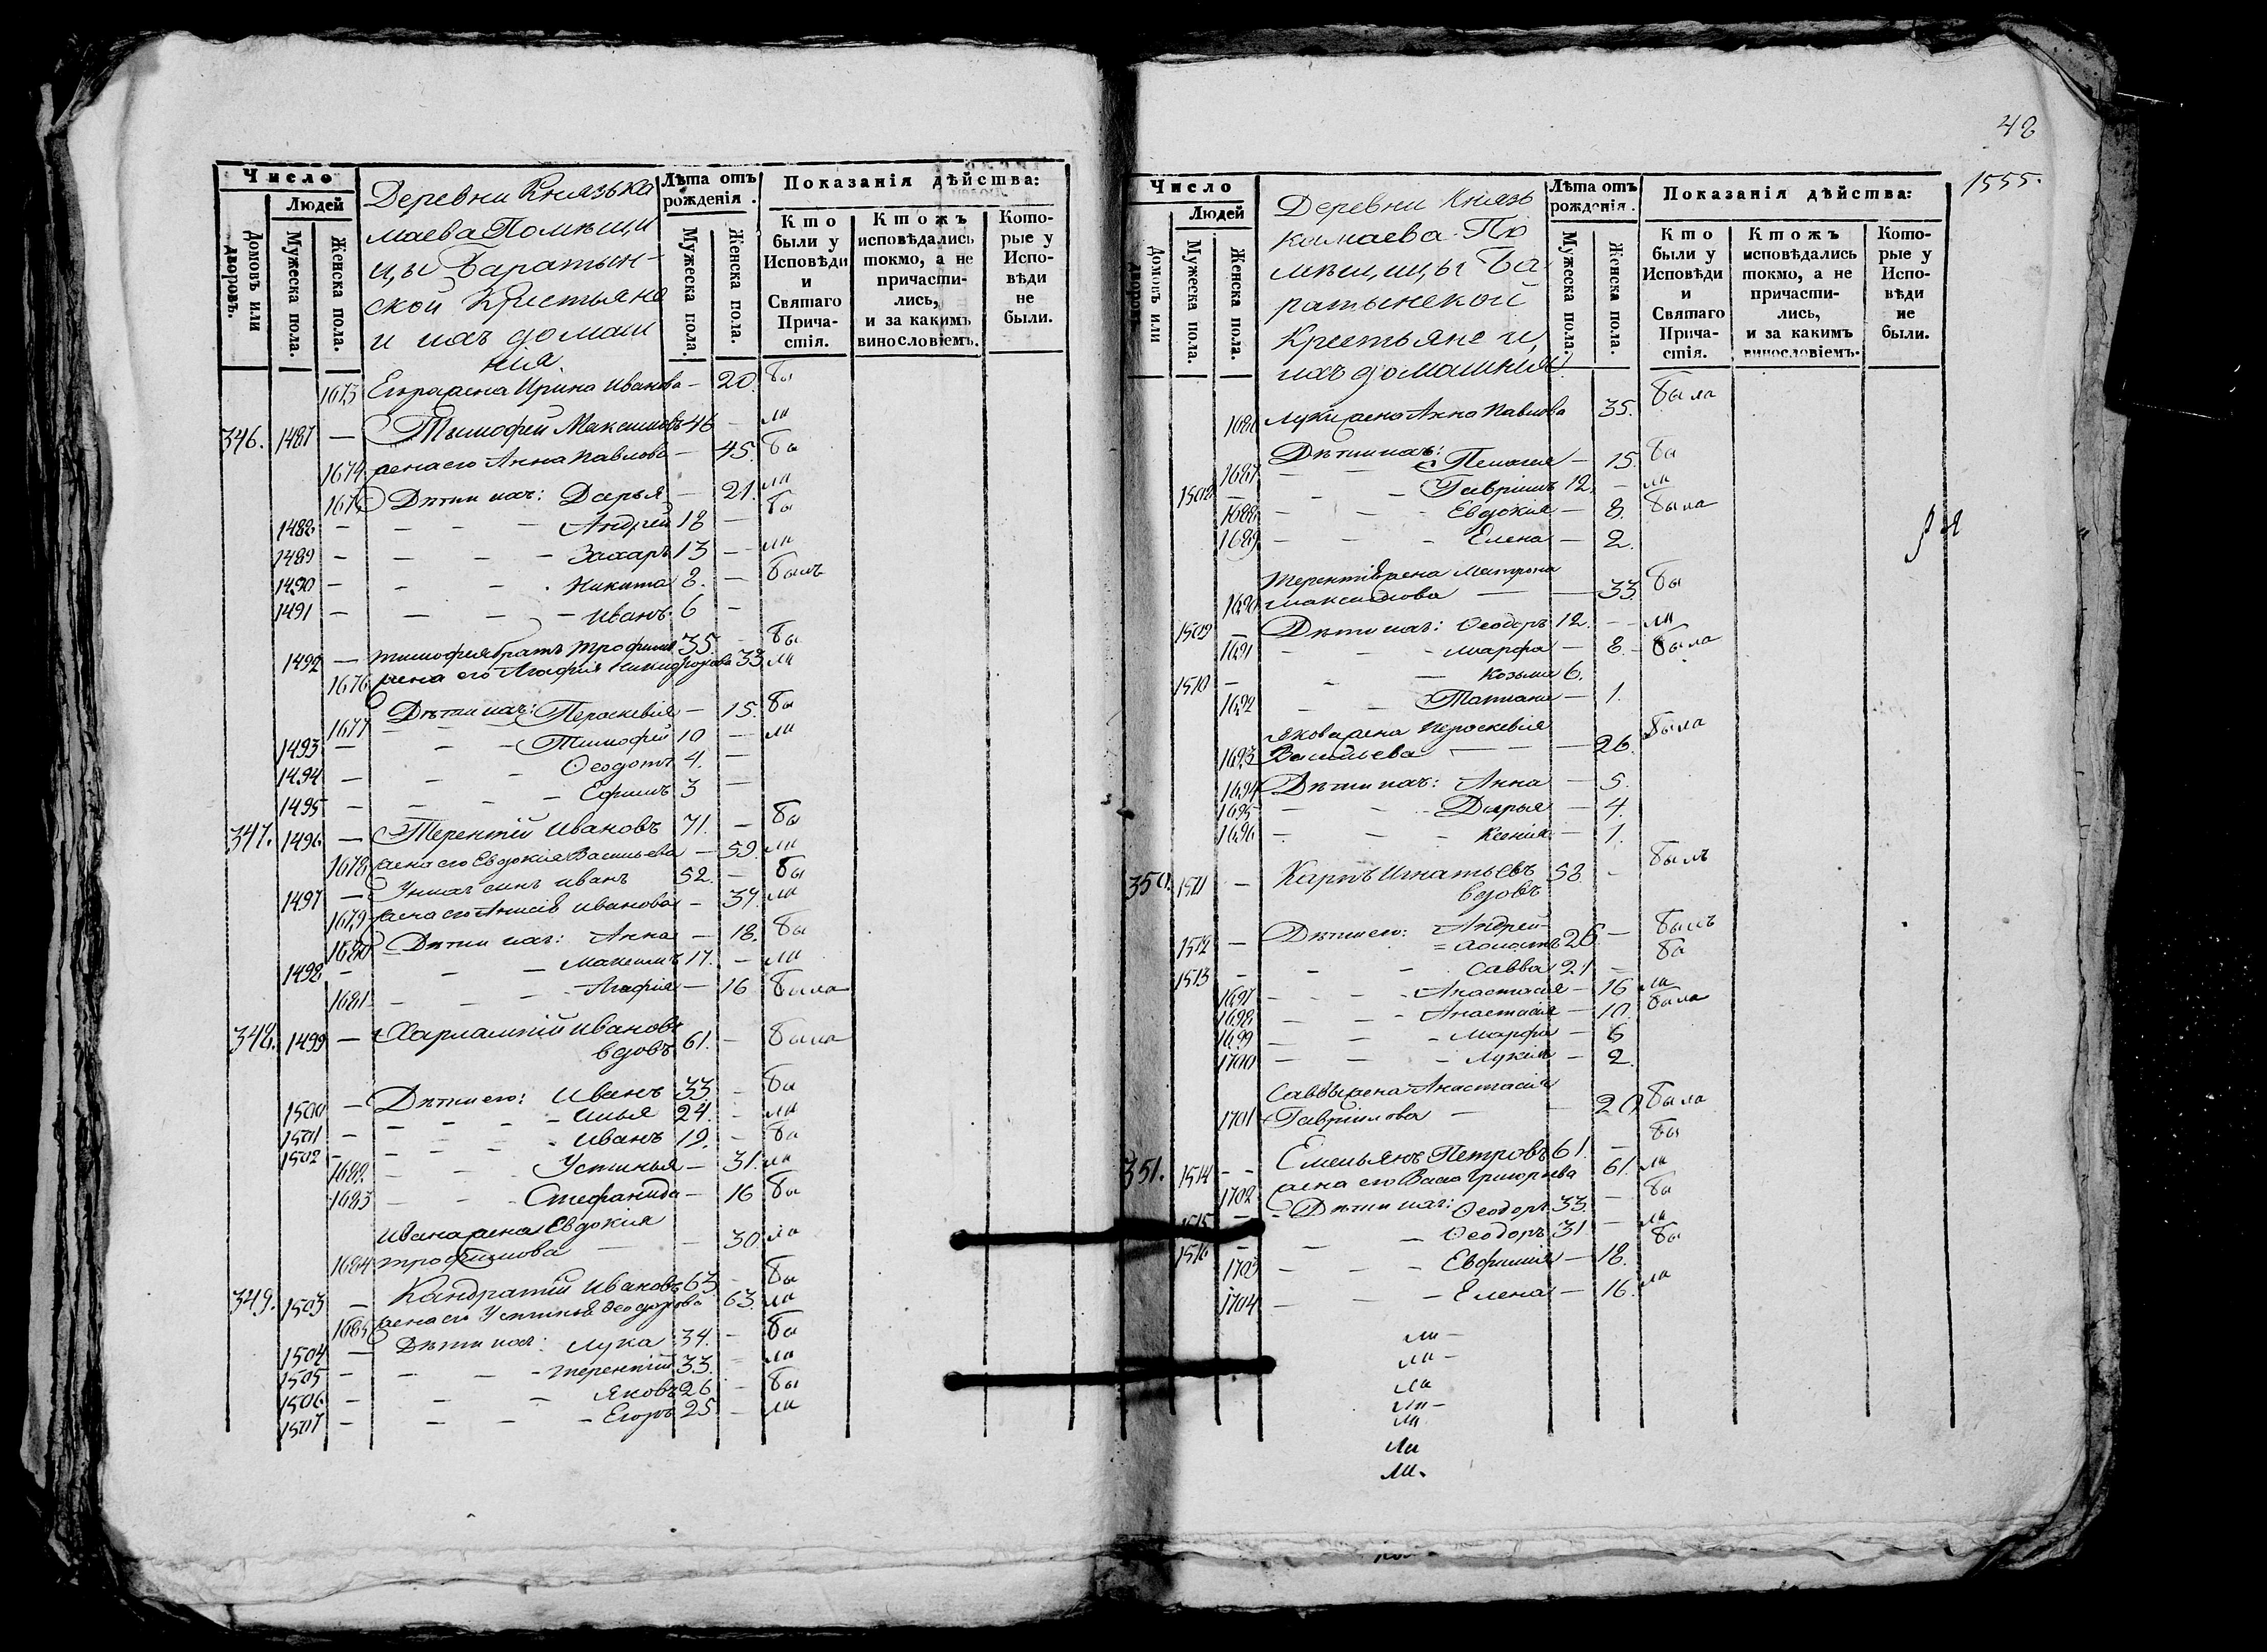 Число
Людей
Домовъ или дворовъ.
Мужеска пола.
Женска пола.
Деревни Князька
маева Помѣщи
цы Баратын-
ской Крестьяне
и ихъ домаш
нія.
Лѣта отъ рожденія.
Мужеска пола.
Женска пола.
Показанія дѣйства:
Кто были у Исповѣди и Святаго Причастія.
Ктожъ исповѣдались токмо, а не причастились, и за какимъ винословіемъ.
Которые у Исповѣди не были.
1673 Егора жена Ирина Иванова — 20. бы
346. 1487 — Тимофей Максимовъ 46 — ли
1674 жена его Анна Павлова — 45. бы
1675 Дѣти ихъ: Дарья — 21. ли
1488 — Андрей 18 — бы
1489 — Захаръ 13 — ли
1490 — Никита 8. — былъ
1491 — Иванъ 6 —
1492 — Тимофея братъ Трофимъ 35. — бы
1676 жена его Агафія Никифорова 33 ли
1677 Дѣти ихъ: Параскевія — 15. бы
1493 — Тимофей 10 — ли
1494 — Ѳеодотъ 4. —
1495 — Ефимъ 3 —
347. 1496 — Терентій Ивановъ 71. — бы
1678 жена его Евдокія Васильева — 59. ли
1497 — У нихъ сынъ Иванъ 52. — бы
1679 жена его Анисія Иванова — 37. ли
1680 Дѣти ихъ: Анна — 18. бы
1498 — Максимъ 17. — ли
1681 — Агафія — 16 была
348. 1499 — Харлампій Ивановъ
вдовъ 61. — была
1500 — Дѣти его: Иванъ 33. — бы
1501 — Илья 24. — ли
1502 — Иванъ 19. — бы
1682 — Устинья — 31. ли
1683 — Стефанида — 16 бы
Ивана жена Евдокія
1684 Трофимова — 30 ла
349. 1503 — Кандратій Ивановъ 63 — бы
1685 жена его Устинья Ѳеодорова 63. ли
1504 — Дѣти ихъ: Лука 34. — бы
1505 — Терентій 33. — ли
1506 — Яковъ 26 — бы
1507 — Егоръ 25 — ли
48
1555.
Число
Людей
Домовъ или дворовъ.
Мужеска пола.
Женска пола.
Деревни Князь
камаева По
мѣщицы Ба
ратынской
Крестьяне и
ихъ домашнія
Лѣта отъ рожденія.
Мужеска пола.
Женска пола.
Показанія дѣйства:
Кто были у Исповѣди и Святаго Причастія.
Ктожъ исповѣдались токмо, а не причастились, и за какимъ винословіемъ.
Которые у Исповѣди не были.
1686 Луки жена Анна Павлова 35. была
1687 Дѣти ихъ: Пелагия — 15. бы
1508 — Гавріилъ 12. — ли
1688 — Евдокія — 8. была
1689 — Елена — 2.
Терентія жена Матрона
1690 Максимова — 33. бы
1509 — Дѣти ихъ: Ѳеодоръ 12. — ли
1691 — Марфа — 8. — была
1510 — Козьма 6.
1692 — Татиана — 1.
Якова жена Параскевія
1693 Васильева — 26. была
1694 Дѣти ихъ: Анна — 5.
1695 — Дарья — 4.
1696 — Ксенія — 1.
350. 1511 — Карпъ Игнатьевъ 58. — былъ
вдовъ
1512 — Дѣти его: Андрей
холостъ 26 — былъ
1513 — Савва 21 — бы
1697 — Анастасія — 16 ли
1698 — Анастасія — 10. была
1699 — Марфа — 6
1700 — Лукія — 2.
Саввы жена Анастасія
1701 Гавриилова — 20 была
351. 1514 — Емельянъ Петровъ 61. — бы
1702 жена его Васса Григорьева 61. ли
1515 — Дѣти ихъ: Ѳеодоръ 33. — бы
1516 — Ѳеодоръ 31 — ли
1703 — Евфимія — 18. бы
1704 — Елена — 16. ли
ли —
ли —
ли
ли —
ли
ли
ли.